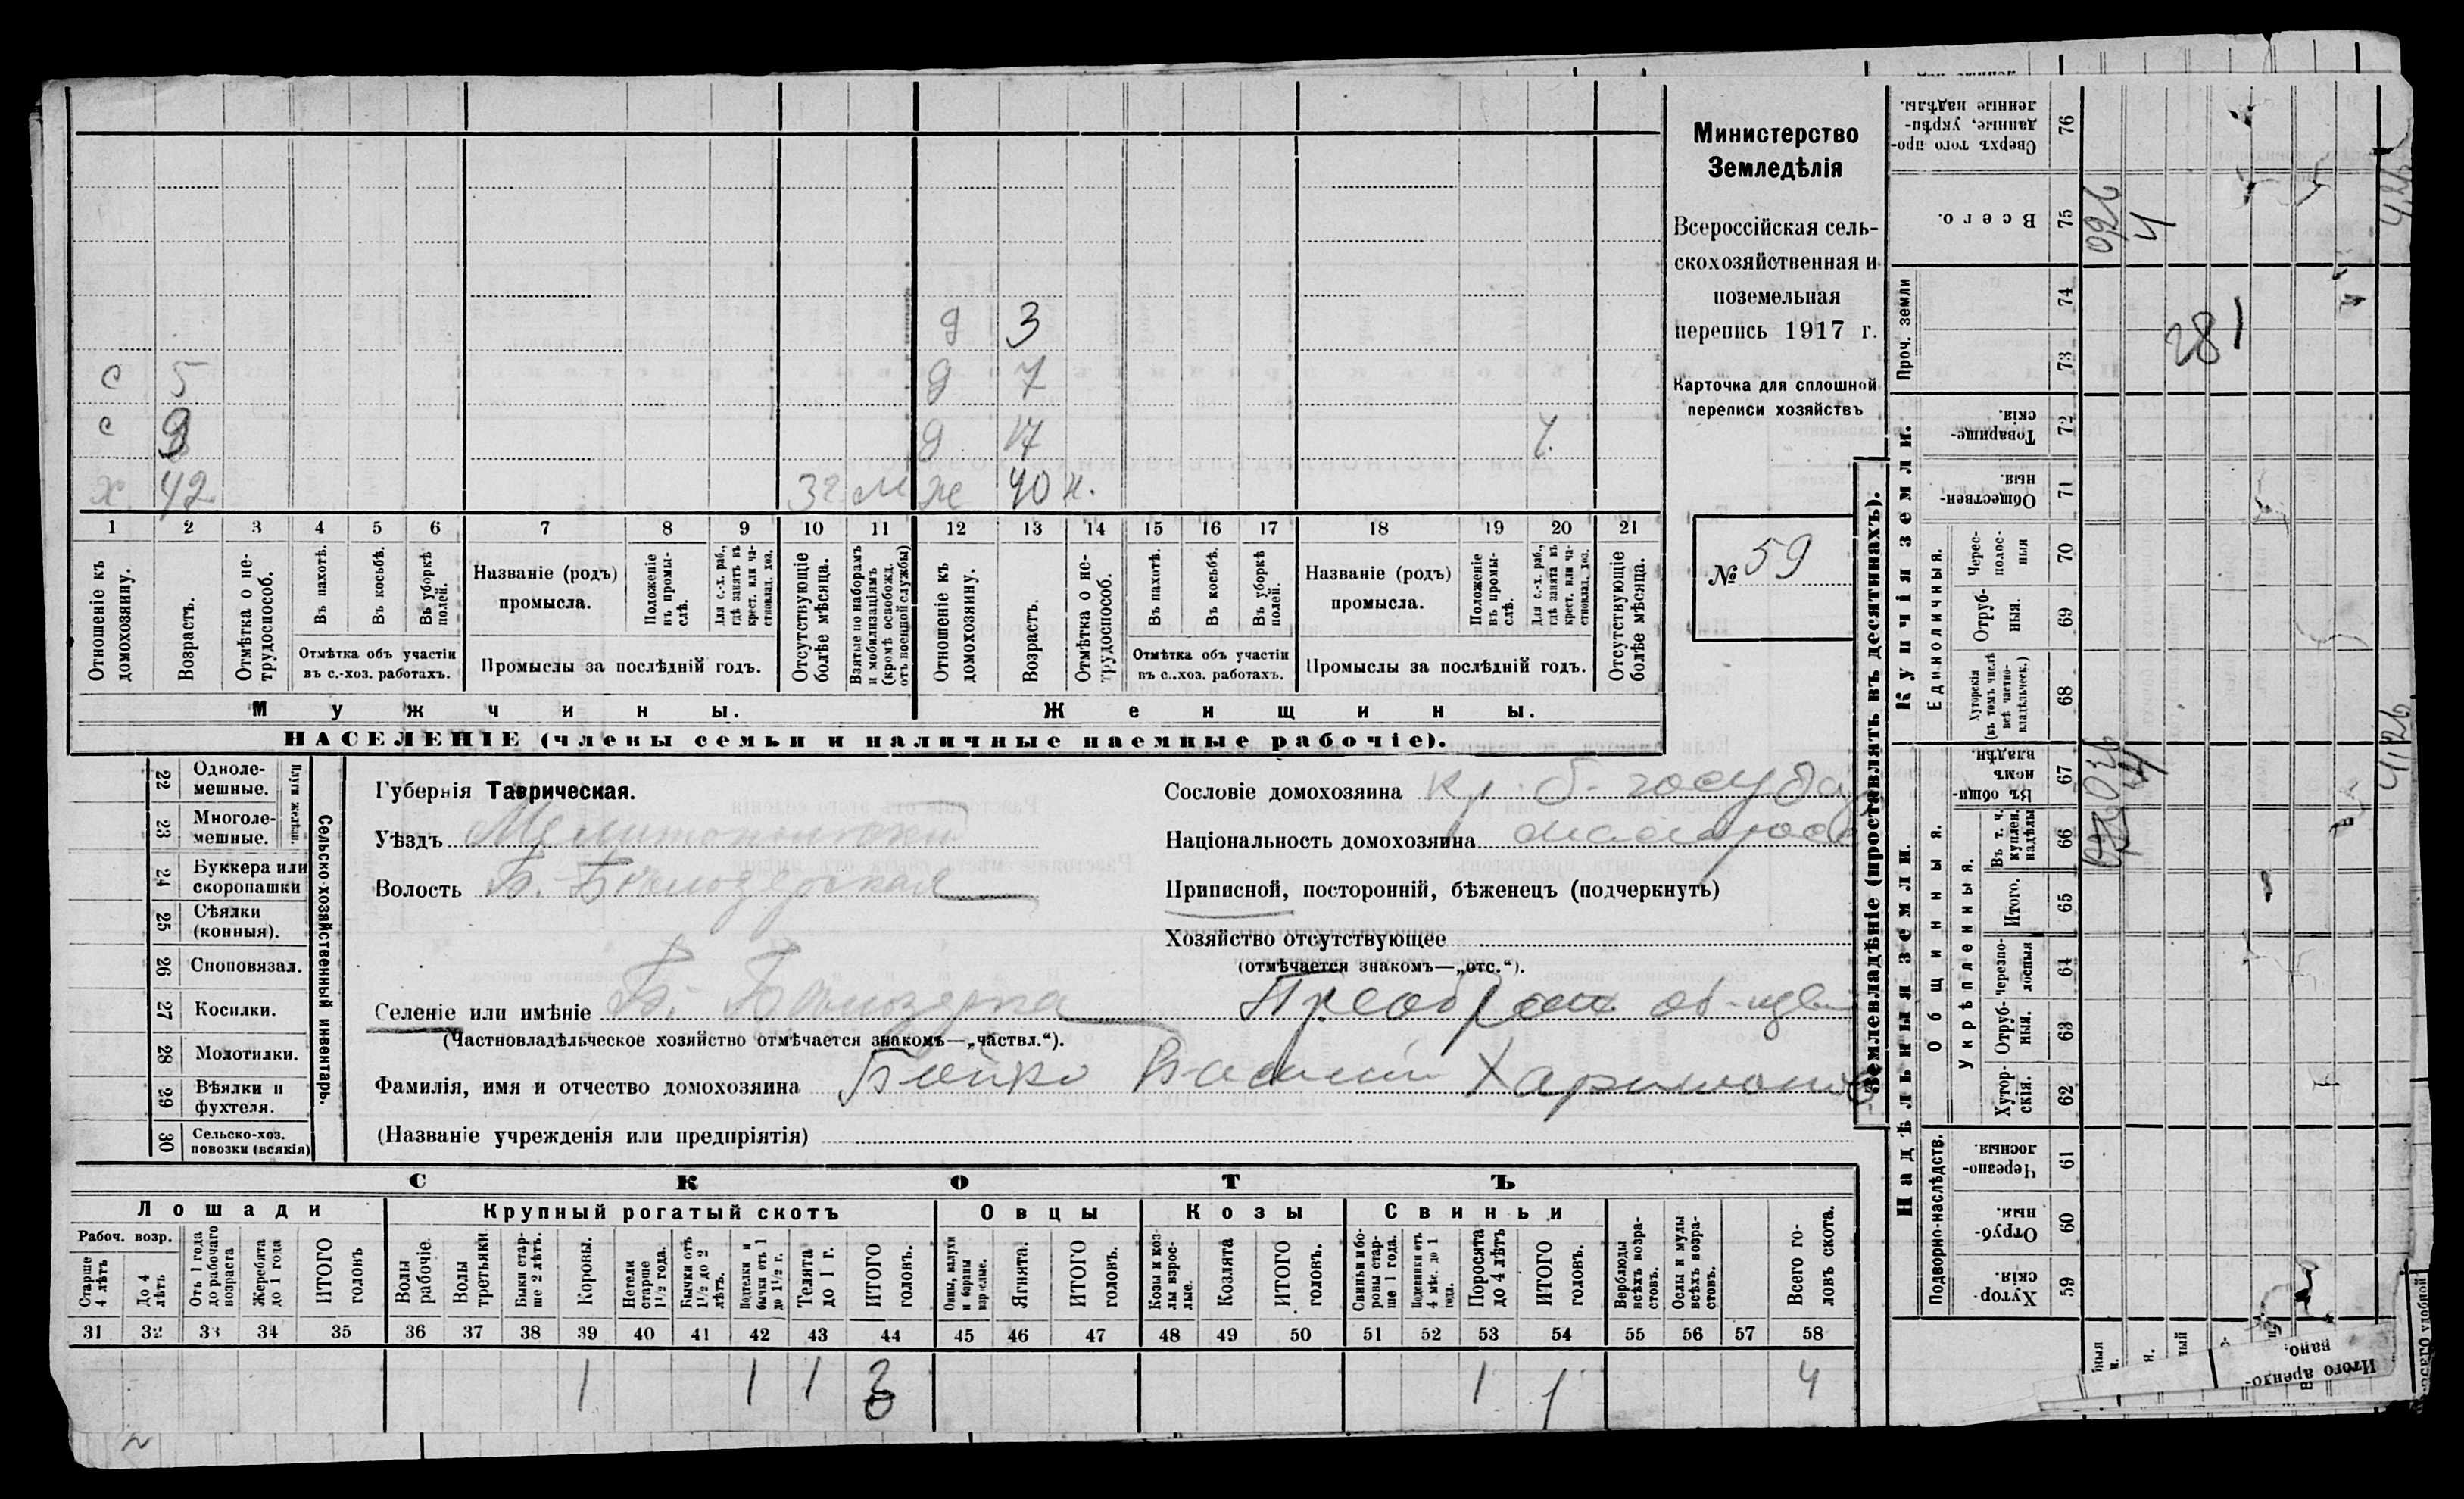 Министерство
Земледѣлія
Всероссійская сель-
скохозяйственная и
поземельная
перепись 1917 г.
Карточка для сплошной
переписи хозяйствъ
№ 59
д 3
с 5 д 7
с 9 д 17
х 42 3 г м ж 40 н.
1 2 3 4 5 6 7 8 9 10 11 12 13 14 15 16 17 18 19 20 21
Отношеніе къ домохозяину.
Возрастъ.
Отмѣтка о не-трудоспособ.
Въ пахотѣ.
Въ косьбѣ.
Въ уборкѣ полей.
Отмѣтка объ участіи
въ с.-хоз. работахъ.
Названіе (родъ)
промысла.
Положеніе въ промы-слѣ.
Для с.-х. раб., гдѣ занятъ въ крест. или ча-стновлад. хоз.
Промыслы за послѣдній годъ.
Отсутствующіе болѣе мѣсяца.
Взятые по наборамъ и мобилизаціямъ (кромѣ освобожд. отъ военной службы)
Отношеніе къ домохозяину.
Возрастъ.
Отмѣтка о не-трудоспособ.
Въ пахотѣ.
Въ косьбѣ.
Въ уборкѣ полей.
Отмѣтка объ участіи
въ с..хоз. работахъ.
Названіе (родъ)
промысла.
Положеніе въ промы-слѣ.
Для с.-х. раб., гдѣ занята въ крест. или ча-стновлад. хоз.
Промыслы за послѣдній годъ.
Отсутствующіе болѣе мѣсяца.
Мужчины. Женщины.
НАСЕЛЕНІЕ (члены семьи и наличные наемные рабочіе).
Сельско-хозяйственный инвентарь.
Плуги желѣзн.
22 Одноле-мешные.
23 Многоле-мешные.
24 Буккера или скоропашки
25 Сѣялки (конныя).
26 Сноповязал.
27 Косилки.
28 Молотилки.
29 Вѣялки и фухтеля.
30 Сельско-хоз. повозки (всякія)
Губернія Таврическая.
Уѣздъ Мелитопольскій
Волость Б. Бѣлозерская
Селеніе или имѣніе Б. Бѣлозерка Преображ об-щев
(Частновладѣльческое хозяйство отмѣчается знакомъ—„частвл.“).
Фамилія, имя и отчество домохозяина Бойко Василій Харитонов
(Названіе учрежденія или предпріятія)
Сословіе домохозяина кр. б. госуда
Національность домохозяина малорос
Приписной, посторонній, бѣженецъ (подчеркнуть)
Хозяйство отсутствующее
(отмѣчается знакомъ—„отс.“).
СКОТЪ
Лошади Крупный рогатый скотъ Овцы Козы Свиньи
Рабоч. возр.
Старше 4 лѣтъ
До 4 лѣтъ
Отъ 1 года до рабочаго возраста
Жеребята до 1 года
ИТОГО головъ
Волы рабочіе.
Волы третьяки.
Быки стар-ше 2 лѣтъ.
Коровы.
Нетели старше 1½ года.
Бычки отъ 1½ до 2 лѣтъ.
Подтелки и бычки отъ 1 до 1½ г.
Телята до 1 г.
ИТОГО головъ.
Овцы, валухи и бараны взрослые.
Ягнята.
ИТОГО головъ.
Козы и коз-лы взрос-лые.
Козлята
ИТОГО головъ.
Свиньи и бо-ровы стар-ше 1 года.
Подсвинки отъ 4 мѣс. до 1 года.
Поросята до 4 лѣтъ
ИТОГО головъ.
Верблюды всѣхъ возра-стовъ.
Ослы и мулы всѣхъ возра-стовъ.
Всего го-ловъ скота.
31 32 33 34 35 36 37 38 39 40 41 42 43 44 45 46 47 48 49 50 51 52 53 54 55 56 57 58
1 1 1 3 1 1 4
Землевладѣніе (проставлять въ десятинахъ).
Купчія земли.
Надѣльныя земли.
Сверхъ того про-данные, укрѣп-ленные надѣлы. 76
Всего. 75
Проч. земли 74 73
Товарище-скія. 72
Обществен-ныя. 71
Единоличныя.
Черес-полос-ныя 70
Отруб-ныя. 69
Хуторскія (въ томъ числѣ всѣ частно-владѣльческ.) 68
Общинныя.
Въ общи-номъ владѣн. 67
Укрѣпленныя.
Въ т. ч. куплен. надѣлы 66
Итого. 65
Черезпо-лосныя 64
Отруб-ныя. 63
Хутор-скія. 62
Подворно-наслѣдств.
Черезпо-лосныя 61
Отруб-ныя. 60
Хутор-скія. 59
281
Итого арендо-вано.